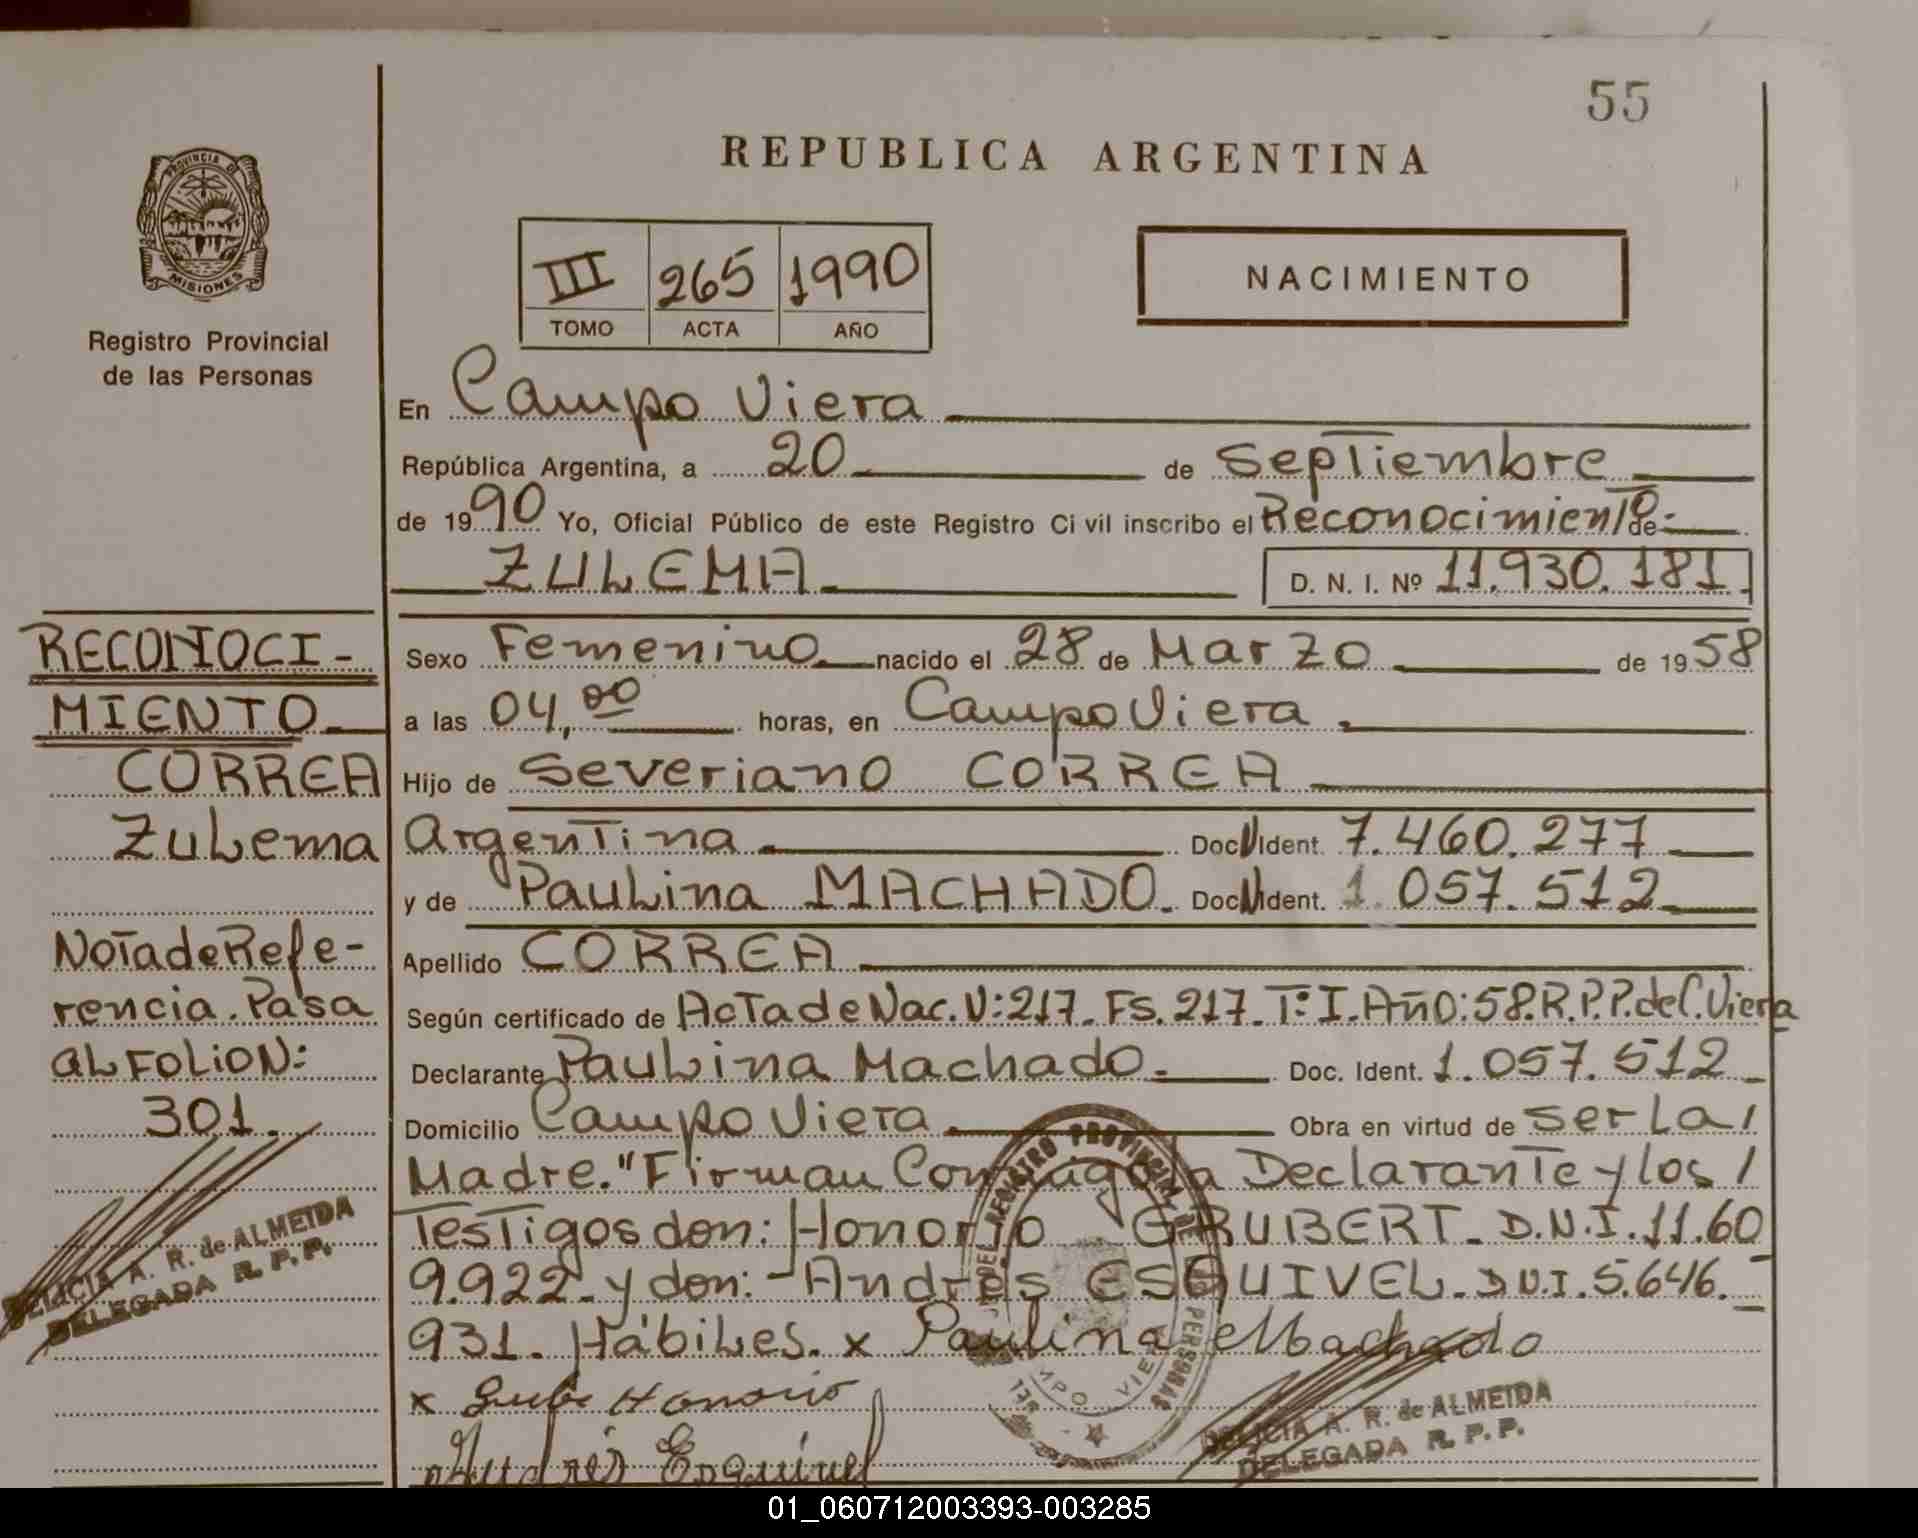 55
REPUBLICA ARGENTINA
PROVINCIA D
MISIONES
Registro Provincial
de las Personas
III 265 1990
TOMO ACTA AÑO
NACIMIENTO
En Campo Viera
República Argentina, a 20 de Septiembre
de 1990 Yo, Oficial Público de este Registro Civil inscribo el Reconocimiento de
ZULEMA D. N. I. Nº 11.930.181
RECONOCI-
MIENTO
CORREA
Zulema
Nota de Refe-
rencia. Pasa
al Folio N:
301.
DELICIA A. R. de ALMEIDA
DELEGADA R. P. P.
Sexo Femenino nacido el 28 de Marzo de 1958
a las 04,00 horas, en Campo Viera.
Hijo de Severiano CORREA
Argentina Doc. Ident. 7.460.277
y de Paulina MACHADO. Doc. Ident. 1.057.512
Apellido CORREA
Según certificado de Acta de Nac. N:217. Fs. 217. Tº I. Año:58. R.P.P. de C. Viera
Declarante Paulina Machado. Doc. Ident. 1.057.512
Domicilio Campo Viera Obra en virtud de ser La /
Madre. "Firman Conmigo la Declarante y los /
Testigos don: Honorio GRUBERT. D.N.I. 11.60
9.922. y don: Andrés ESQUIVEL. D.N.I. 5.646.
931. Hábiles. x Paulina Machado
x Honorio
Andrés Esquivel
REGISTRO PROVINCIAL PERSONAS
DELICIA A. R. de ALMEIDA
DELEGADA R. P. P.
01_060712003393-003285